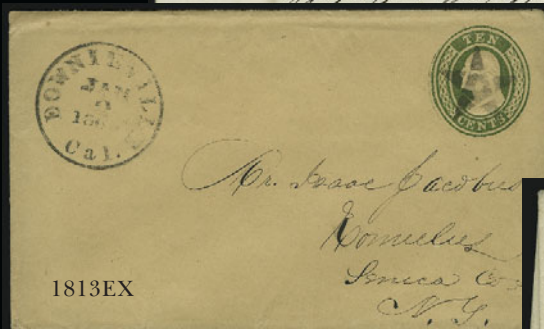 DOWNIEVILLE
JAN
Cal.
TEN
CENTS
Mr. Isaac Jacobus
Romulus
Seneca Co
N. Y.
1813EX